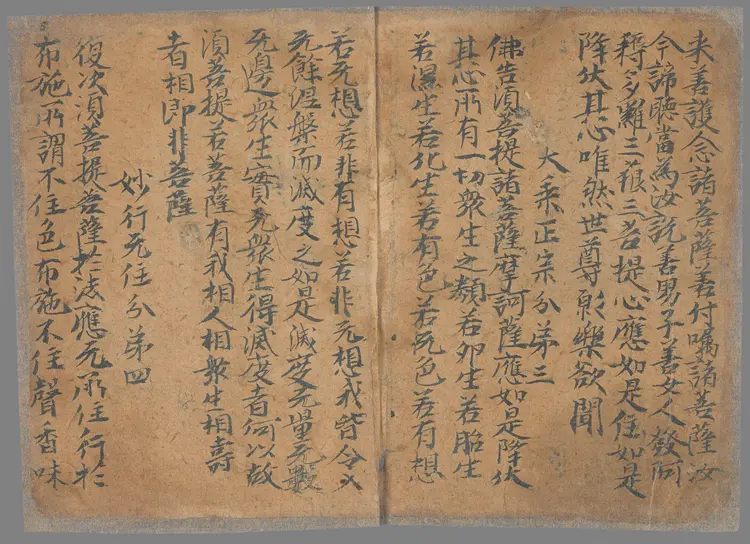 来善護念諸菩薩善付嘱諸菩薩汝
今諦聽當為汝説善男子善女人發阿
耨多難三狼三菩提心應如是住如是
降伏其心唯然世尊願樂欲聞
大乘正宗分第三
佛告須菩提諸菩薩摩訶薩應如是降伏
其心所有一切衆生之類若卵生若胎生
若濕生若化生若有色若无色若有想
若无想若非有想若非无想我皆令入
无餘涅盤而滅度之如是滅度无量无數
无邊衆生實无衆生得滅度者何以故
須菩提若菩薩有我相人相衆生相壽
者相即非菩薩
妙行无住分第四
復次須菩提菩薩於法應无所住行於
布施所謂不住色布施不住聲香味
5